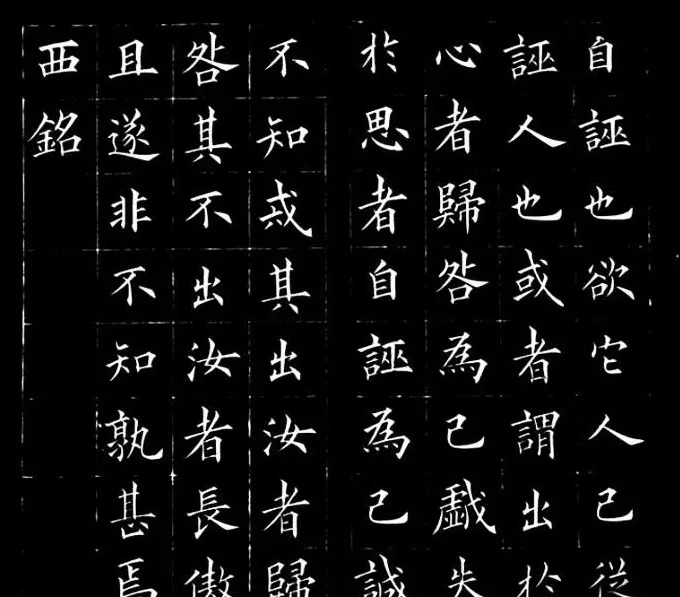 自誣也欲它人已從
誣人也或者謂出於
心者歸咎為已戲失
於思者自誣為己誠
不知戒其出汝者歸
咎其不出汝者長傲
且遂非不知孰甚焉
西銘